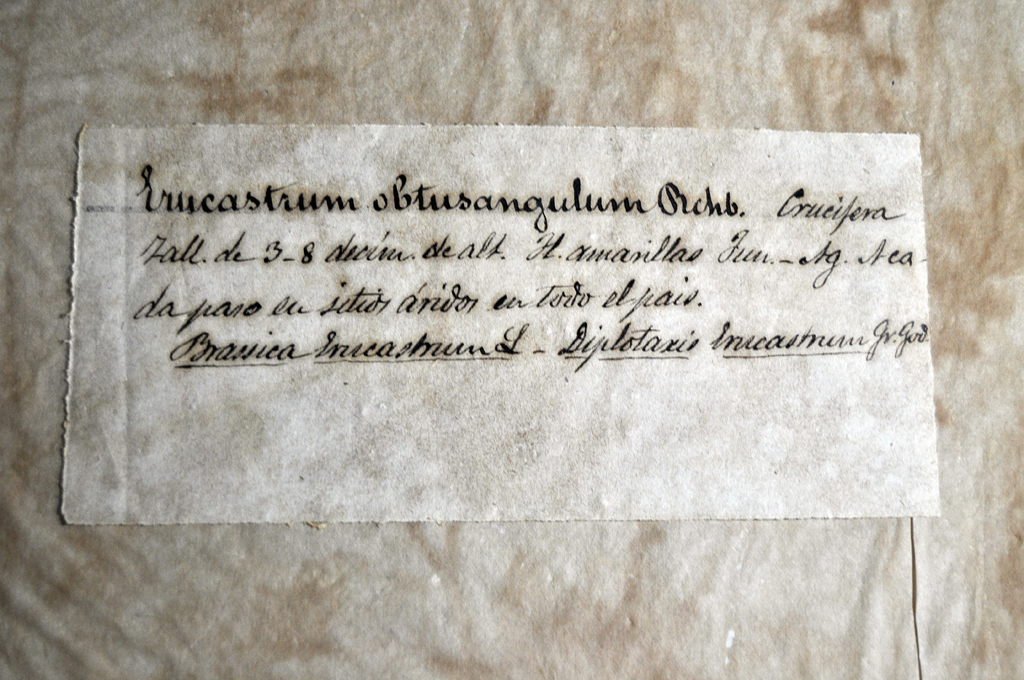 Erucastrum obtusangulum Rchb. Crucifera
Tall. de 3-8 decím. de alt. Fl. amarillas Jun.-Ag. A ca-
da paso en sitios áridos en todo el pais.
Brassica Erucastrum L - Diplotaxis Erucastrum Gr. God.